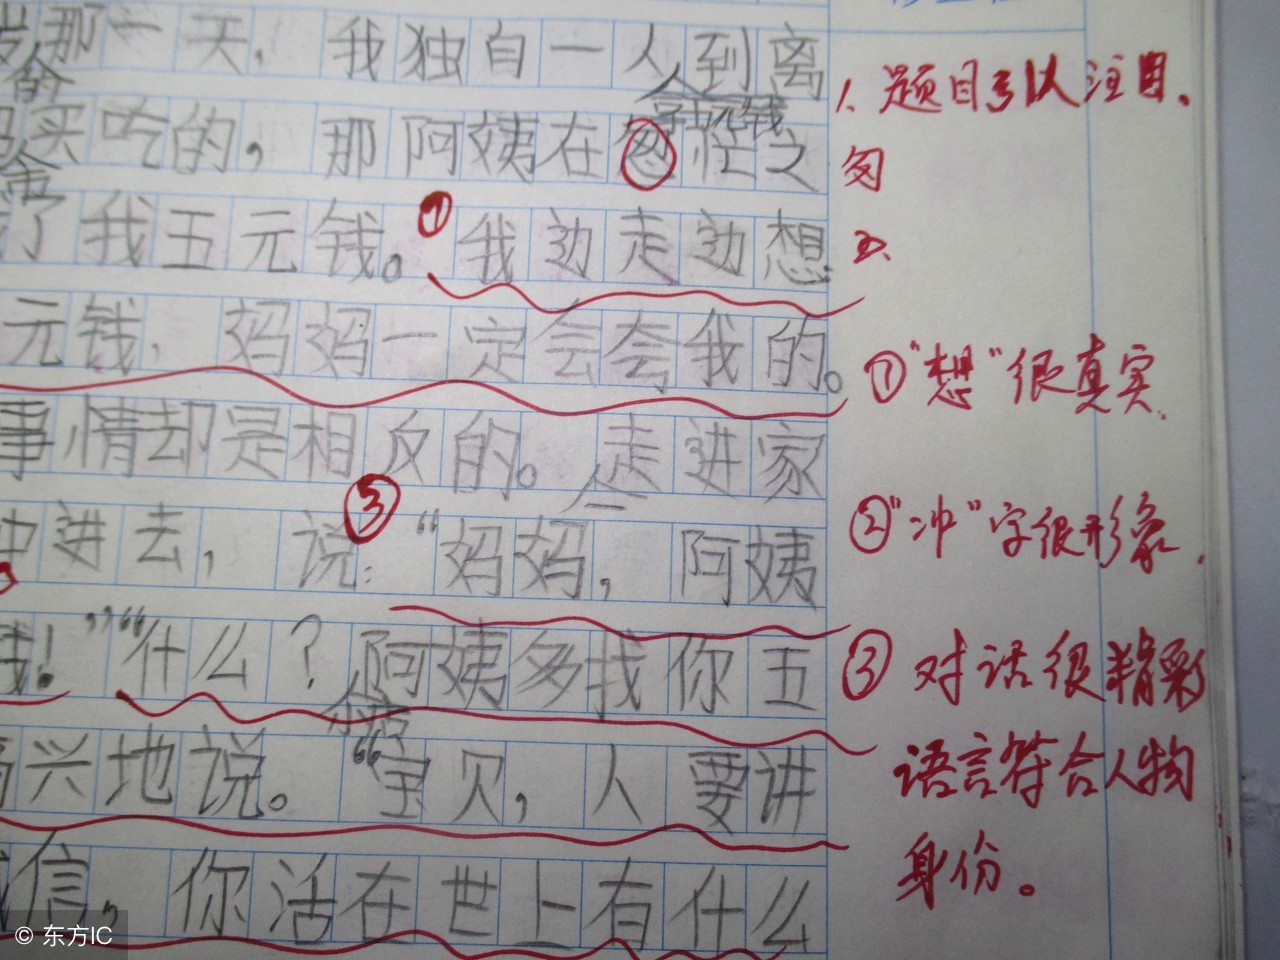 那一天，我独自一人到离
的
买吃的，那阿姨在匆忙之
了我五元钱。我边走边想
元钱，妈妈一定会夸我的。
事情却是相反的。走进家
冲进去，说：“妈妈，阿姨
钱！”“什么？阿姨多找你五
高兴地说。“宝贝，人要讲
诚信，你活在世上有什么
1、题目引人注目。
匆
2、
①“想”很真实。
②“冲”字很形象。
③对话很精彩
语言符合人物
身份。
①
②
③
© 东方IC